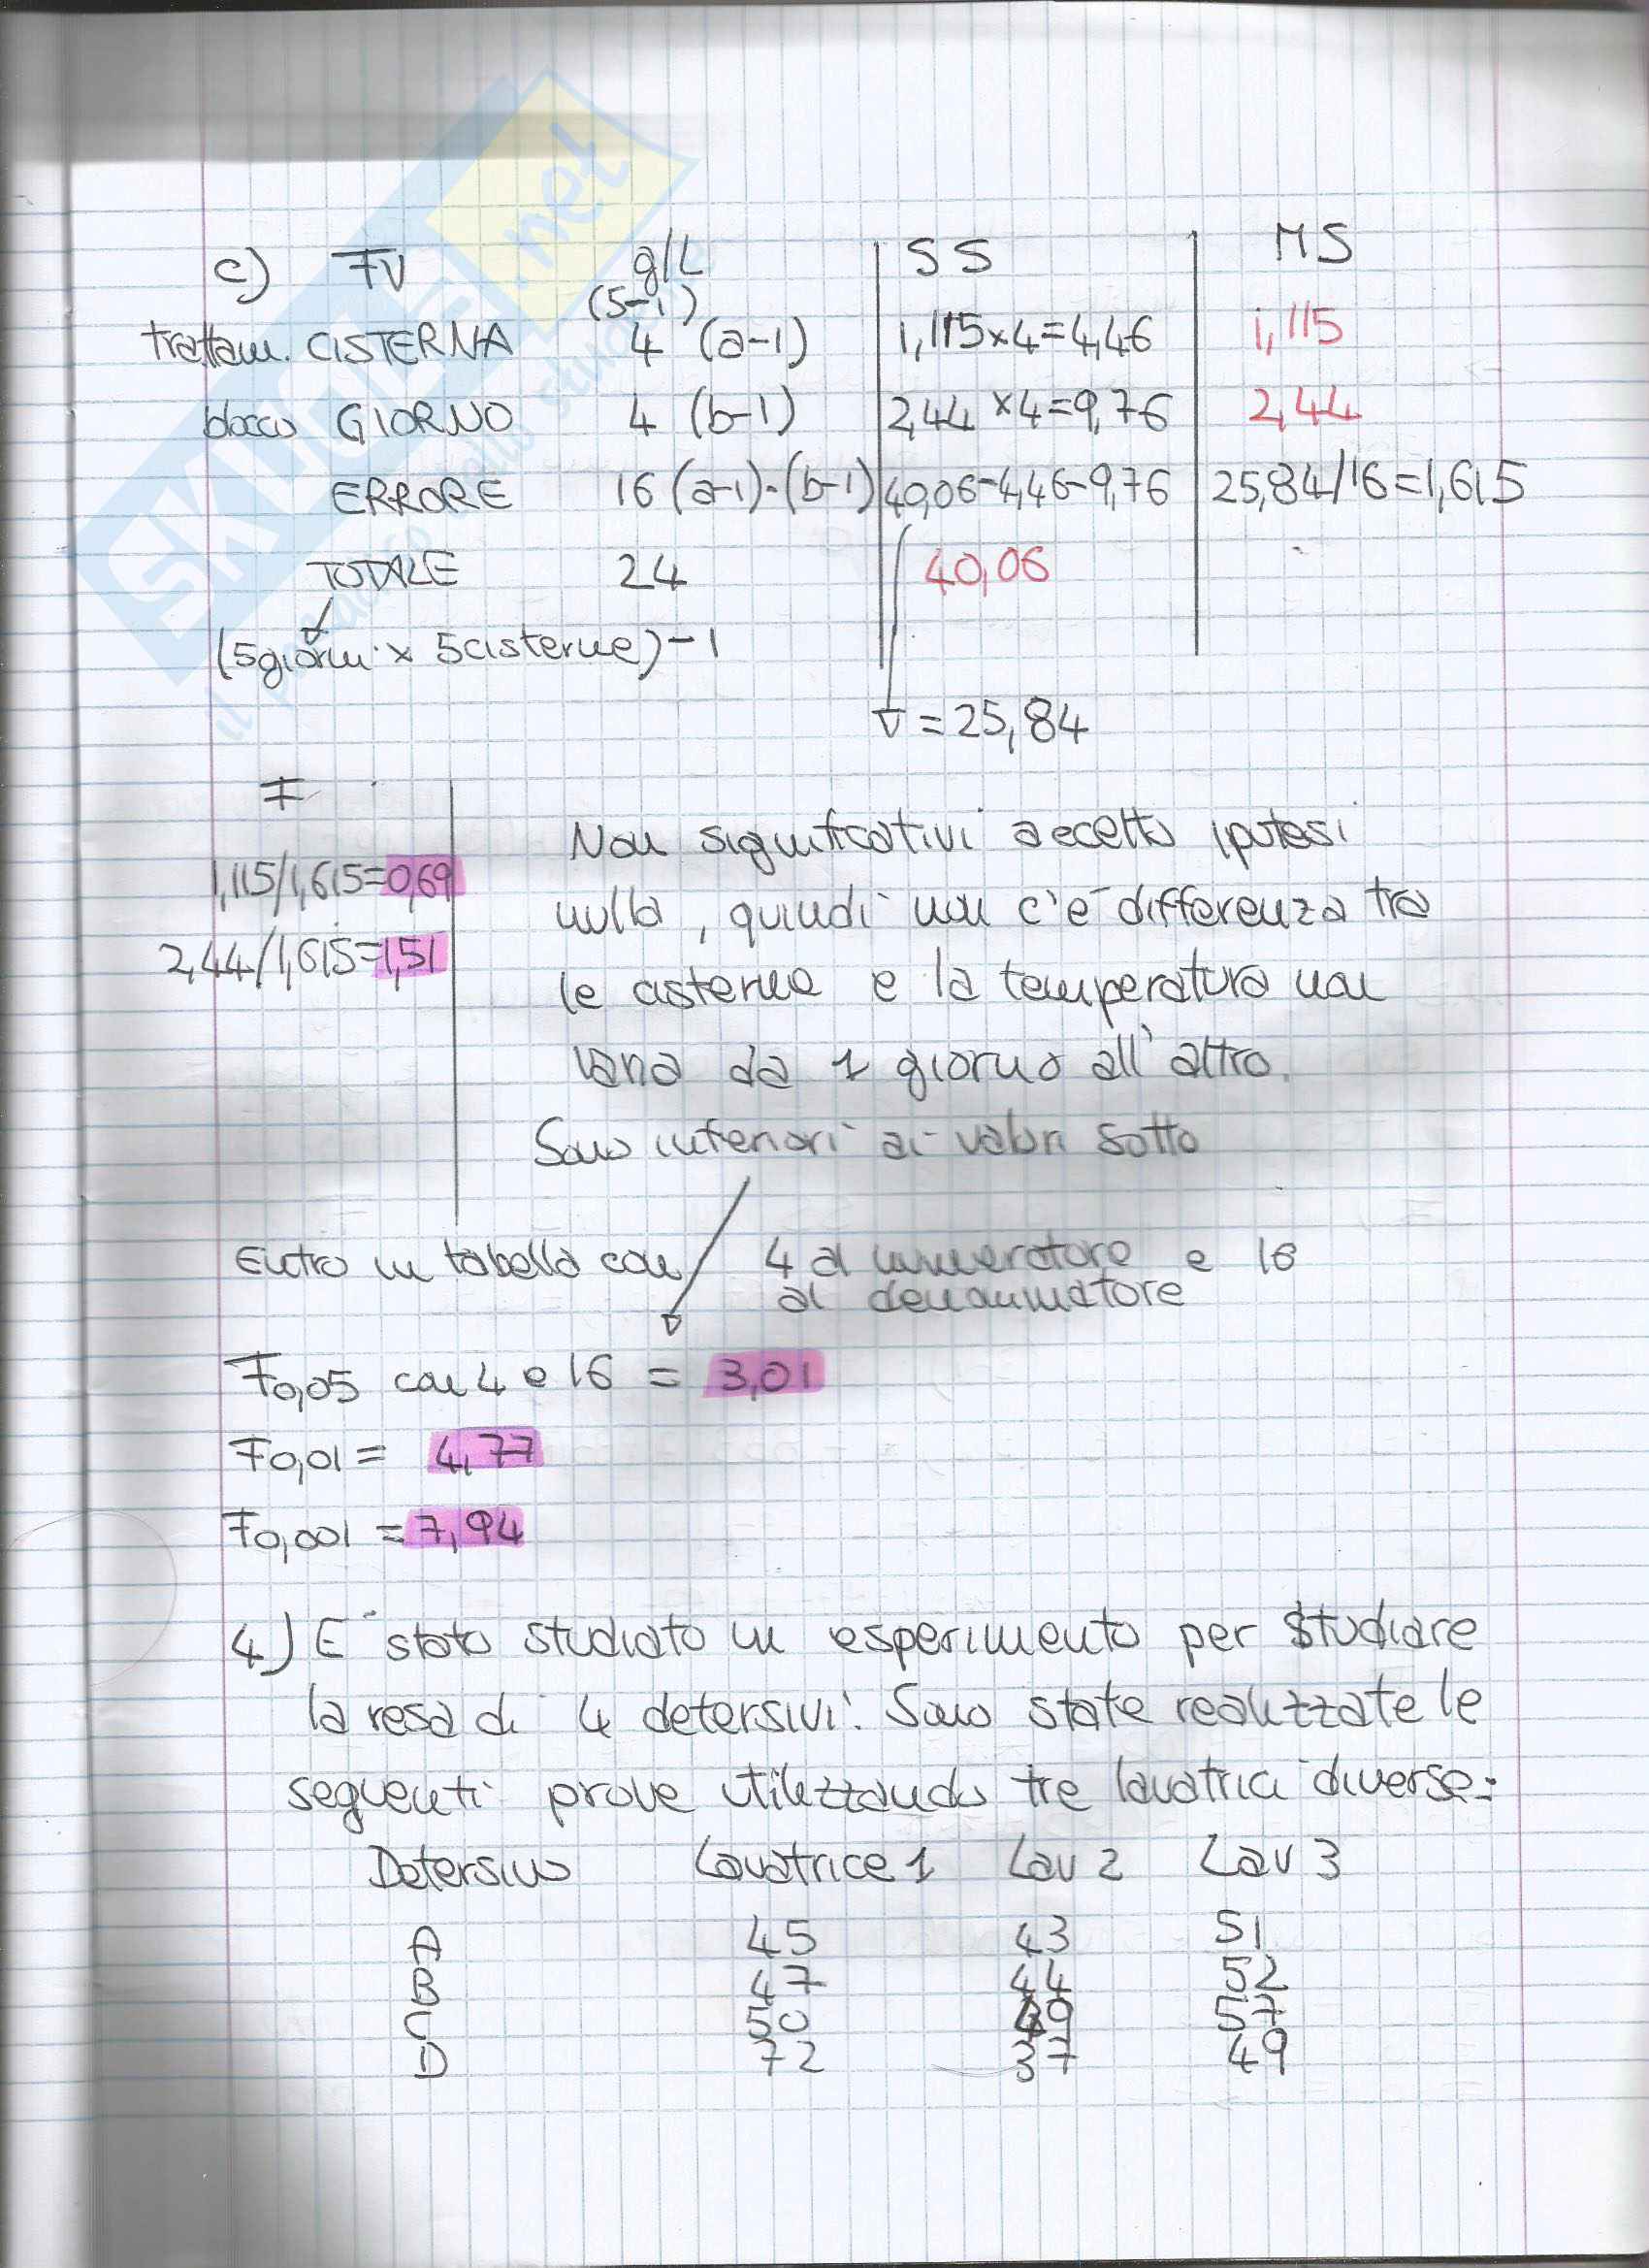 c) FV g/L SS MS
(5-1)
trattam. CISTERNA 4 (a-1) 1,115x4=4,46 1,115
blocco GIORNO 4 (b-1) 2,44 x4=9,76 2,44
ERRORE 16 (a-1)·(b-1) 40,06-4,46-9,76 25,84/16=1,615
TOTALE 24 40,06
(5giorni x 5cisterne)-1
=25,84
F
1,115/1,615=0,69
2,44/1,615=1,51
Non significativi accetto ipotesi
nulla, quindi non c'è differenza tra
le cisterne e la temperatura non
varia da 1 giorno all'altro.
Sono inferiori ai valori sotto
Entro in tabella con 4 al numeratore e 16
al denominatore
F0,05 con 4 e 16 = 3,01
F0,01 = 4,77
F0,001 = 7,94
4) E' stato studiato un esperimento per studiare
la resa di 4 detersivi. Sono state realizzate le
seguenti prove utilizzando tre lavatrici diverse:
Detersivo Lavatrice 1 Lav 2 Lav 3
A 45 43 51
B 47 44 52
C 50 49 57
D 72 37 49
SKUOLA.net